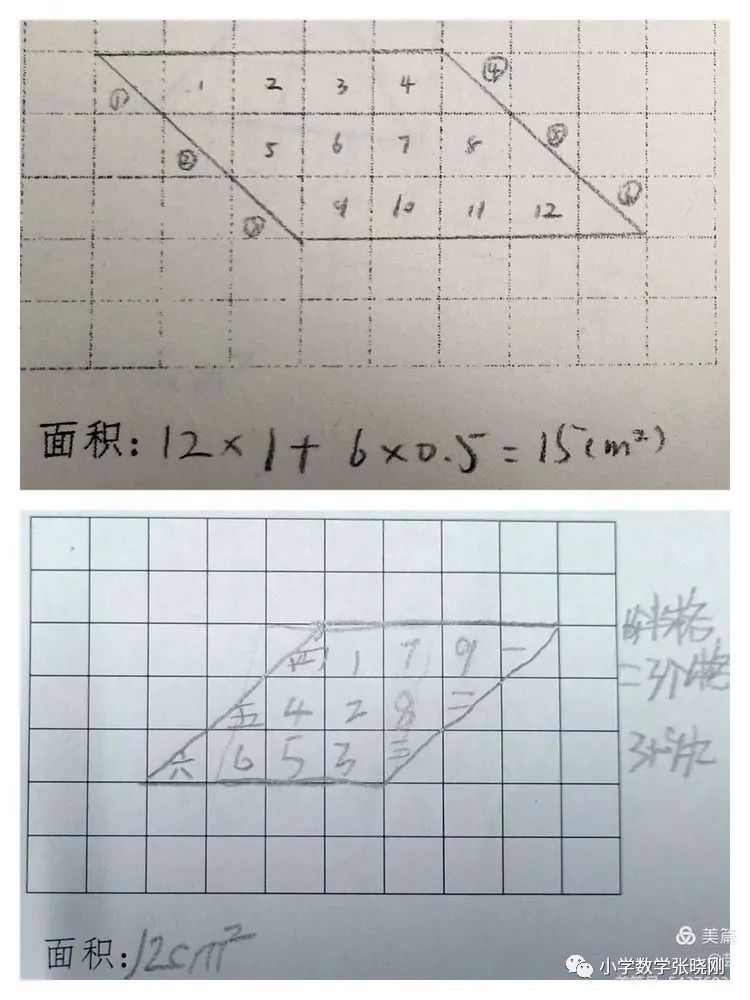 ① 1 2 3 4 ④
② 5 6 7 8 ⑤
③ 9 10 11 12 ⑥
面积: 12×1+6×0.5=15(m²)
四 1 7 9 一
五 4 2 8 二
六 6 5 3 三
斜格
面积: 12cm²
美篇
小学数学张晓刚